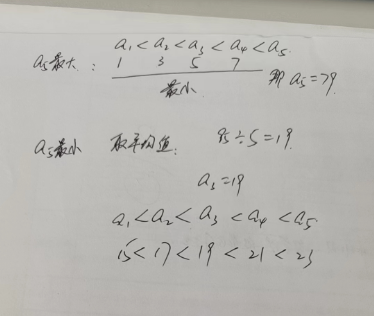 a₁<a₂<a₃<a₄<a₅
a₅最大: 1 3 5 7
最小 那 a₅=79
a₅最小 取平均值: 95÷5=19
a₃=19
a₁<a₂<a₃<a₄<a₅
15<17<19<21<23